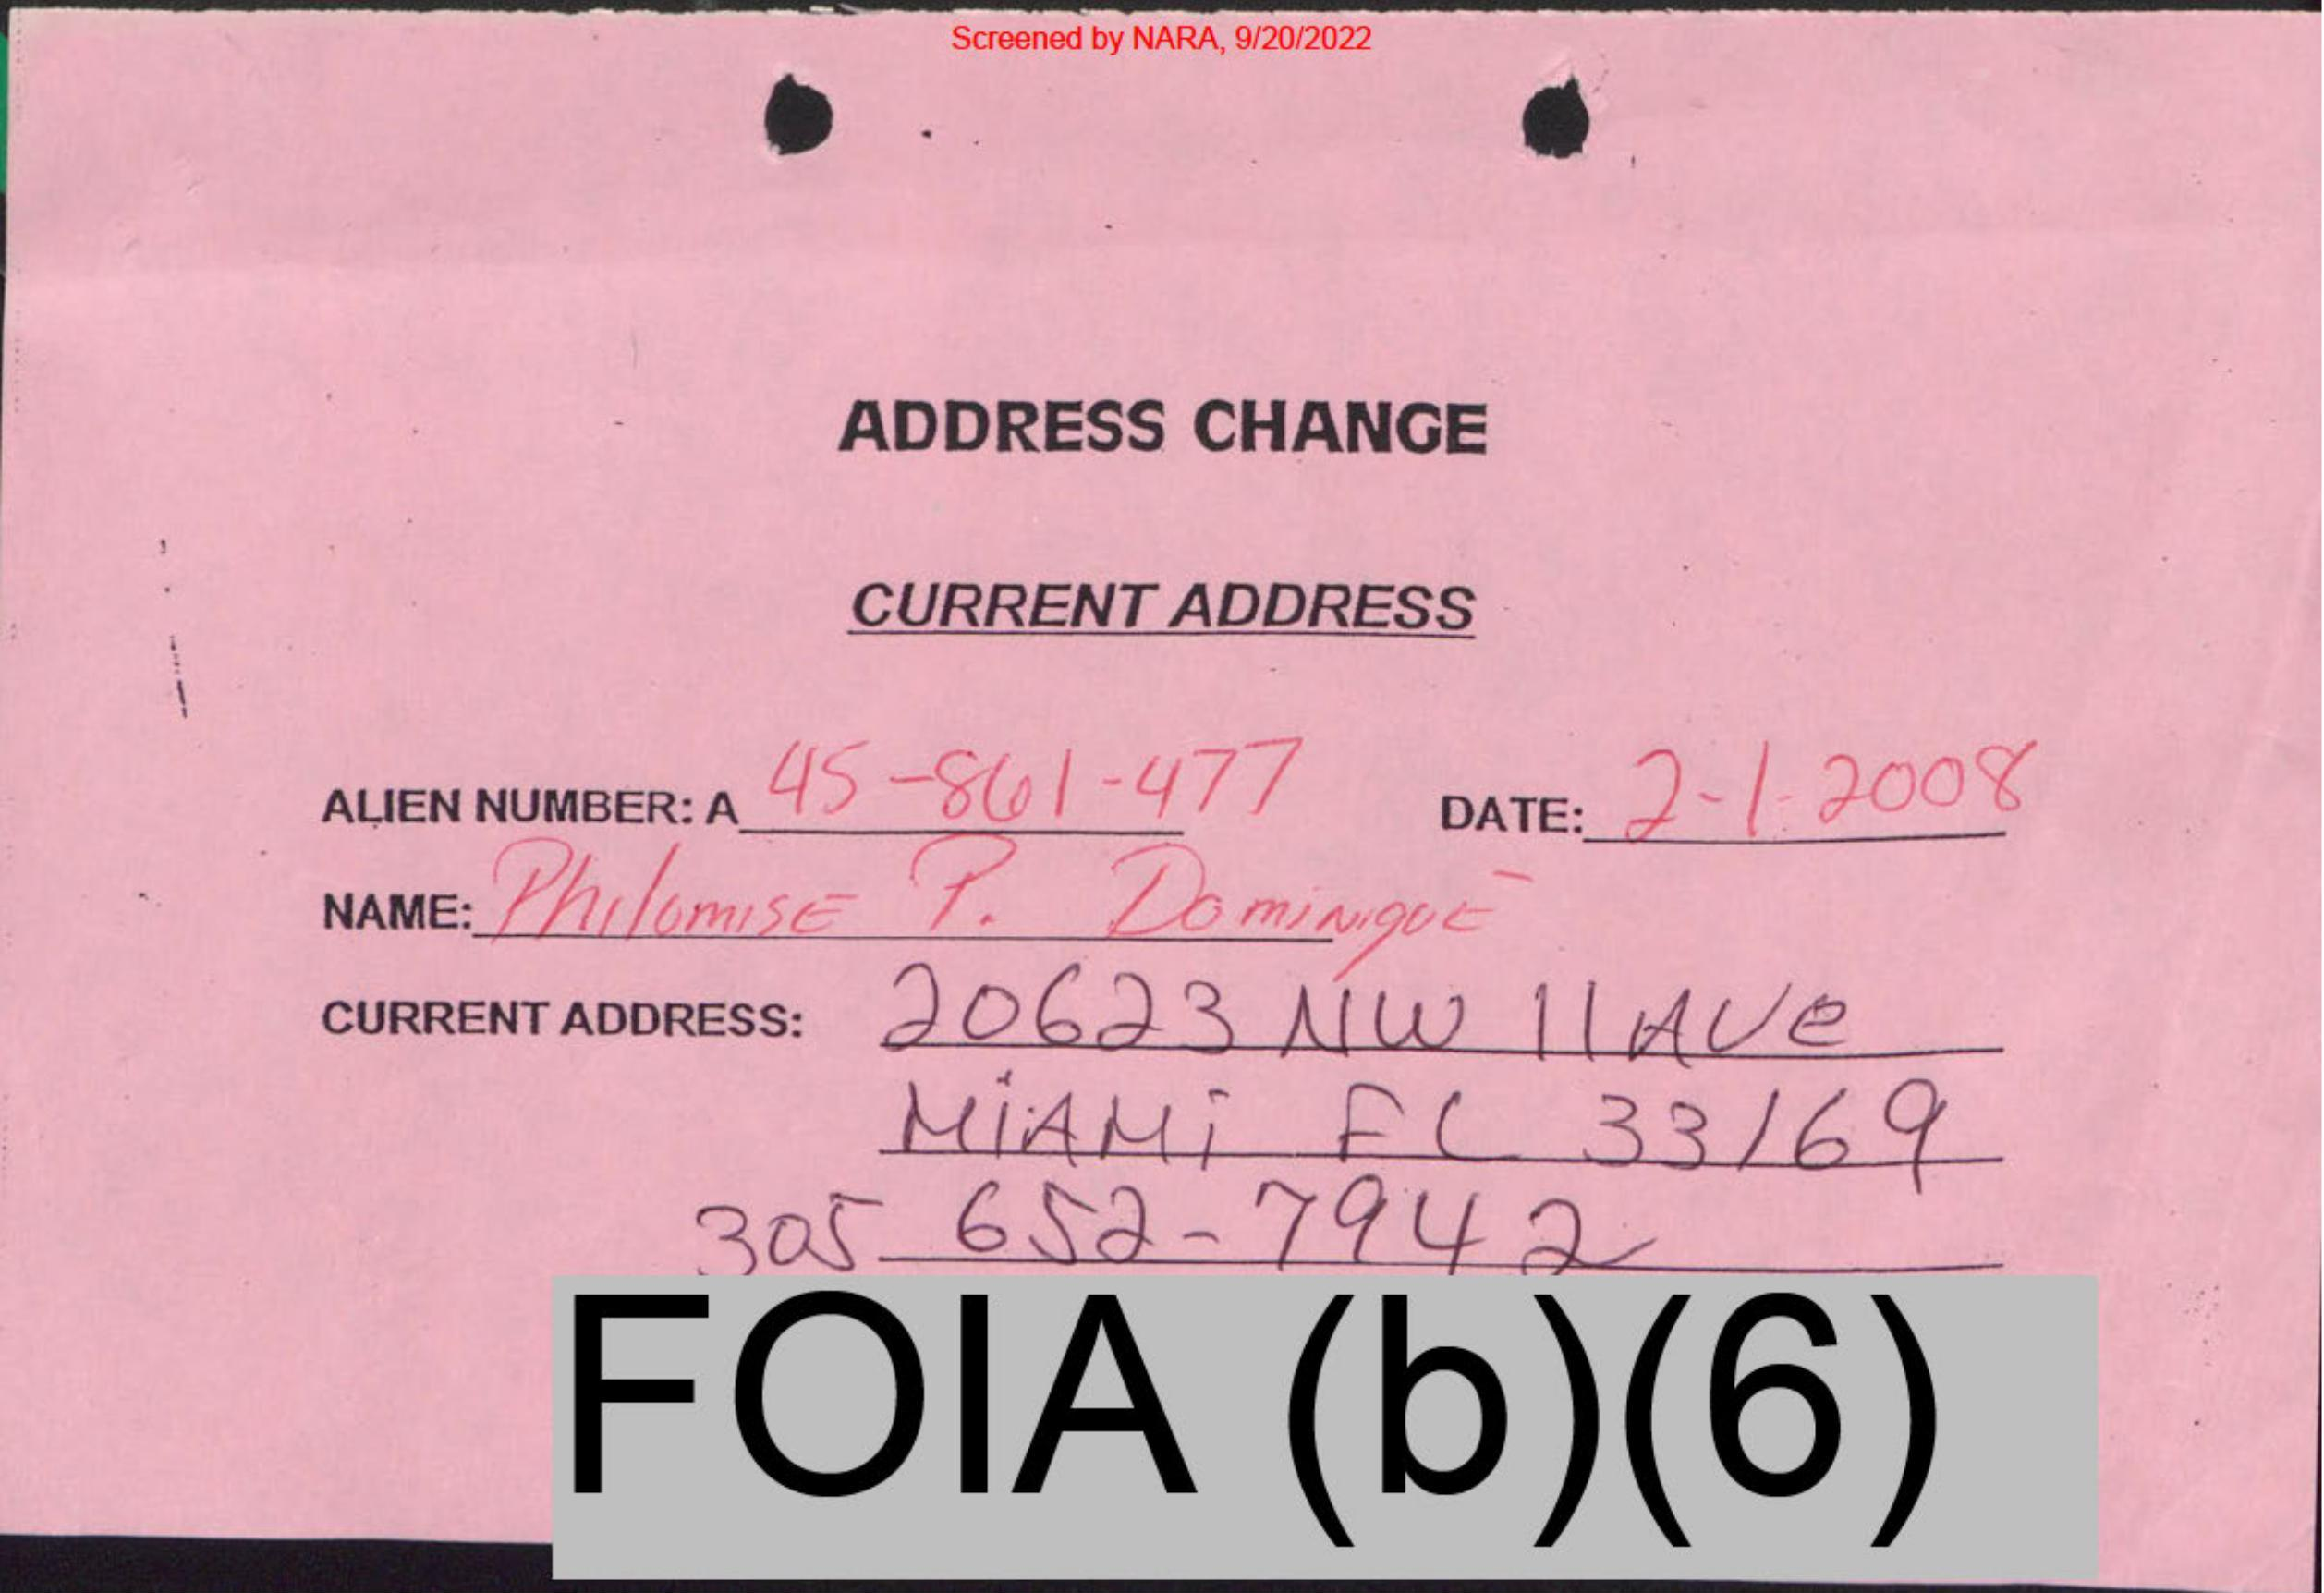 Screened by NARA, 9/20/2022
ADDRESS CHANGE
CURRENT ADDRESS
ALIEN NUMBER: A 45-861-477 DATE: 2-1-2008
NAME: PhilomisE P. DominiquE
CURRENT ADDRESS: 20623 NW 11 AVe
MiAMi FL 33169
305 652-7942
FOIA (b)(6)